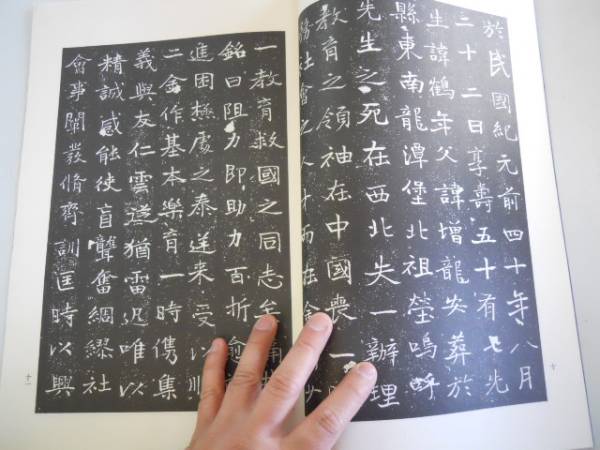 於民國紀元前四十年八月
二十二日享壽五十有七先
生諱鶴年父諱增龍安葬於
縣東南龍潭堡北祖塋嗚呼
先生之死在西北失一辦理
教育之領袖在中國喪一
務社會之人才而在余
十
一教育救國之同志
銘曰阻力即助力百折愈
進困極處之泰逆來受以
二舍作基本樂育一時儁集
義與友仁雲從猶雷凡唯以
精誠感能使盲聾奮綢繆社
會事闡發脩齊訓匡時以興
十一